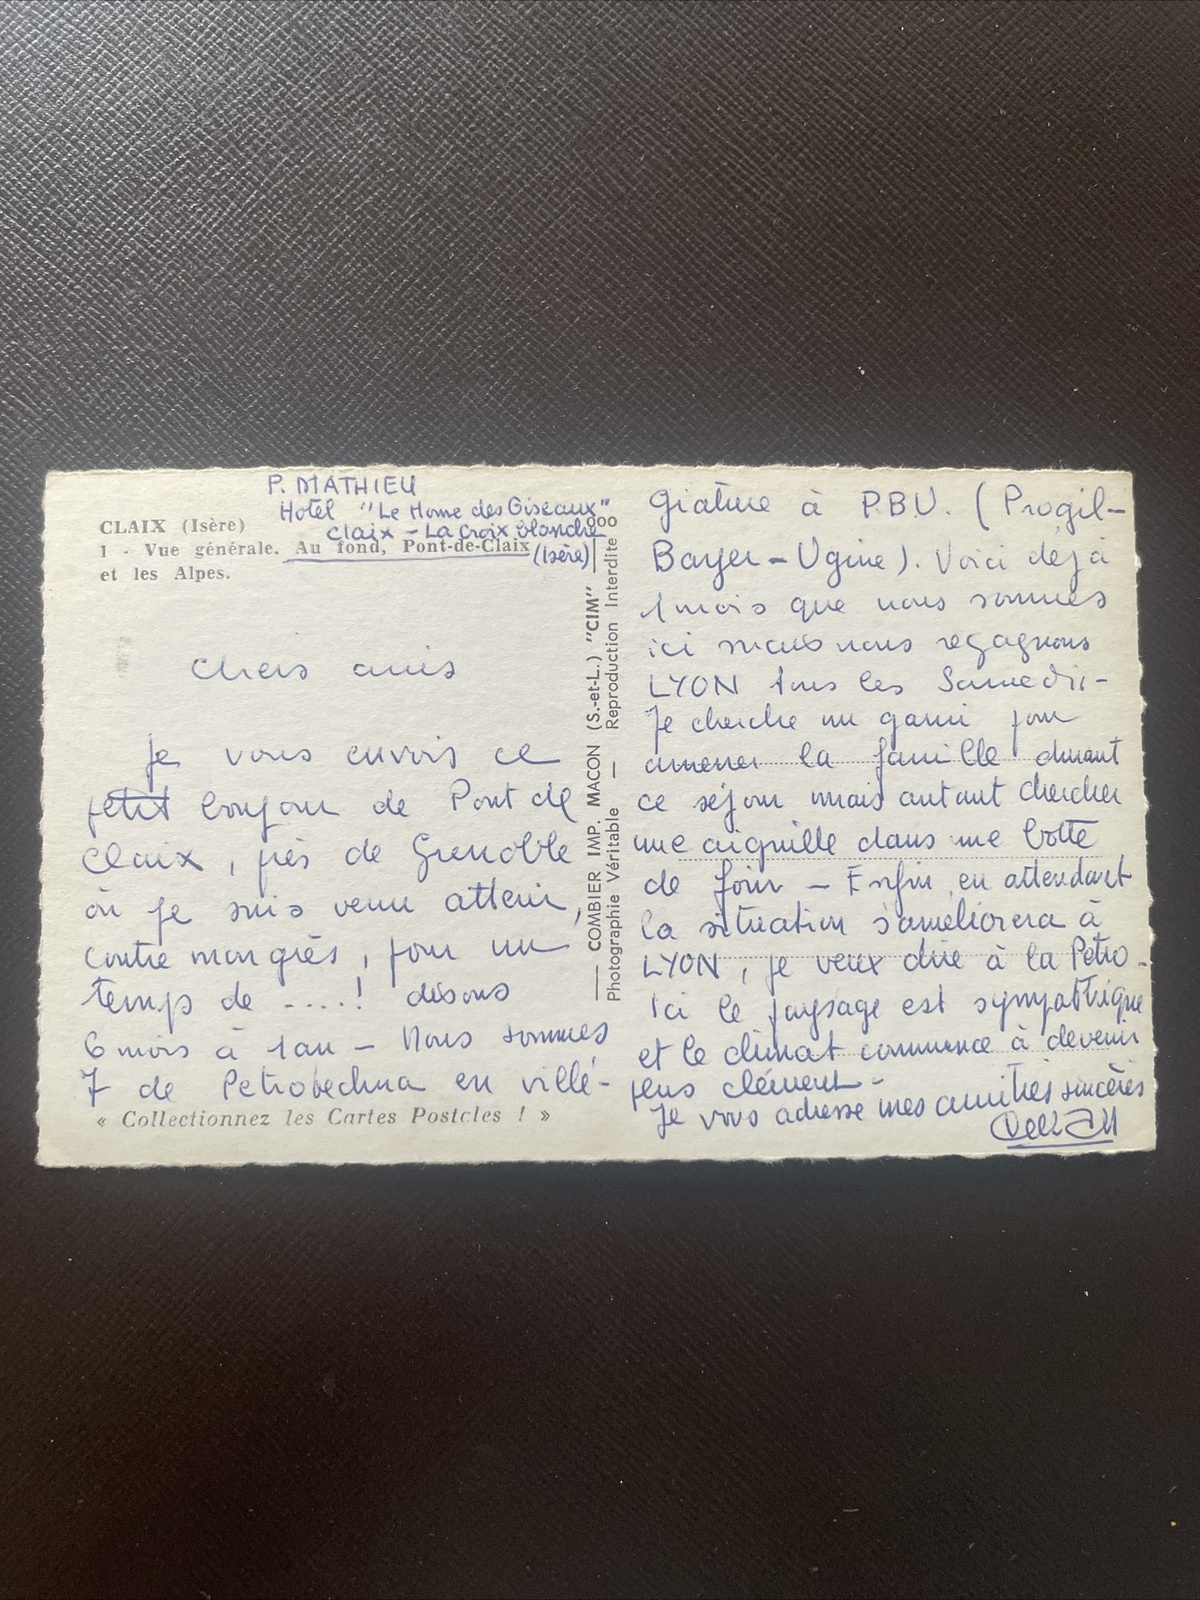 P. MATHIEU
Hôtel "Le Home des Oiseaux"
Claix - La Croix blanche
(Isère)
CLAIX (Isère)
1 - Vue générale. Au fond, Pont-de-Claix
et les Alpes.
Chers amis
Je vous envois ce
petit bonjour de Pont de
Claix, près de Grenoble
où je suis venu atterir,
contre mon grès, pour un
temps de ....! disons
6 mois à 1 an - Nous sommes
7 de Petrotechna en villé-
« Collectionnez les Cartes Postales ! »
COMBIER IMP. MACON (S.-et-L.) "CIM"
Photographie Véritable — Reproduction Interdite
giature à P.B.U. (Progil-
Bayer-Ugine). Voici déjà
1 mois que nous sommes
ici mais nous regagnons
LYON tous les Samedis-
Je cherche un garni pour
amener la famille durant
ce séjour mais autant chercher
une aiguille dans une botte
de foin - Enfin, en attendant
la situation s'améliorera à
LYON, je veux dire à la Petro-
Ici le paysage est sympathique
et le climat commence à devenir
plus clément-
Je vous adresse mes amitiés sincères